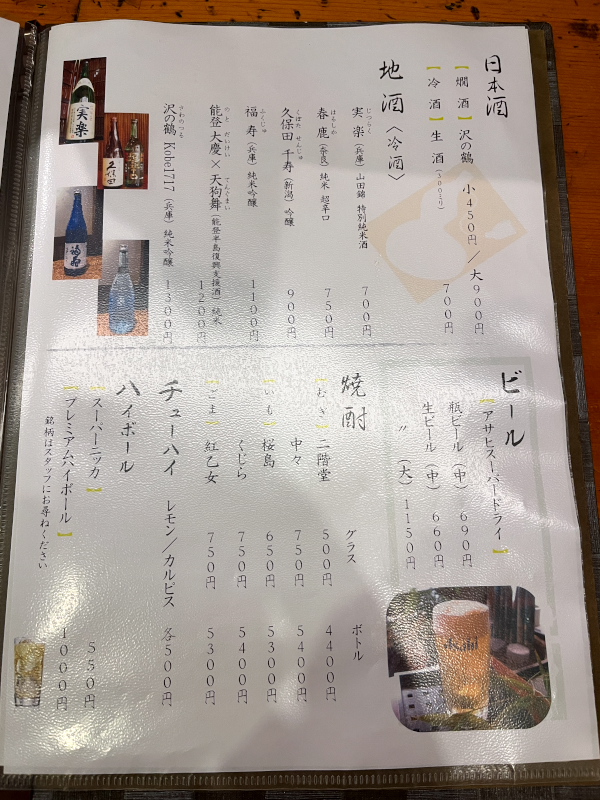 日本酒
【燗酒】沢の鶴 小450円/大900円
【冷酒】生酒(300ミリ) 700円
地酒〈冷酒〉
実楽(兵庫)山田錦 特別純米酒 700円
じつらく
春鹿(奈良)純米 超辛口 750円
はるしか
久保田 千寿(新潟)吟醸 900円
くぼた せんじゅ
福寿(兵庫)純米吟醸 1100円
ふくじゅ
能登 大慶×天狗舞(能登半島復興支援酒)純米 1200円
のと だいけい てんぐまい
沢の鶴 Kobe1717(兵庫)純米吟醸 1300円
さわのつる
実楽
久保田
福寿
ビール
【アサヒスーパードライ】
瓶ビール(中) 690円
生ビール(中) 660円
〃(大) 1150円
Asahi
焼酎
グラス ボトル
【むぎ】二階堂 500円 4400円
中々 750円 5400円
【いも】桜島 650円 5300円
くじら 750円 5400円
【ごま】紅乙女 750円 5300円
チューハイ レモン/カルピス 各500円
ハイボール
【スーパーニッカ】 550円
【プレミアムハイボール】 1000円
銘柄はスタッフにお尋ねください